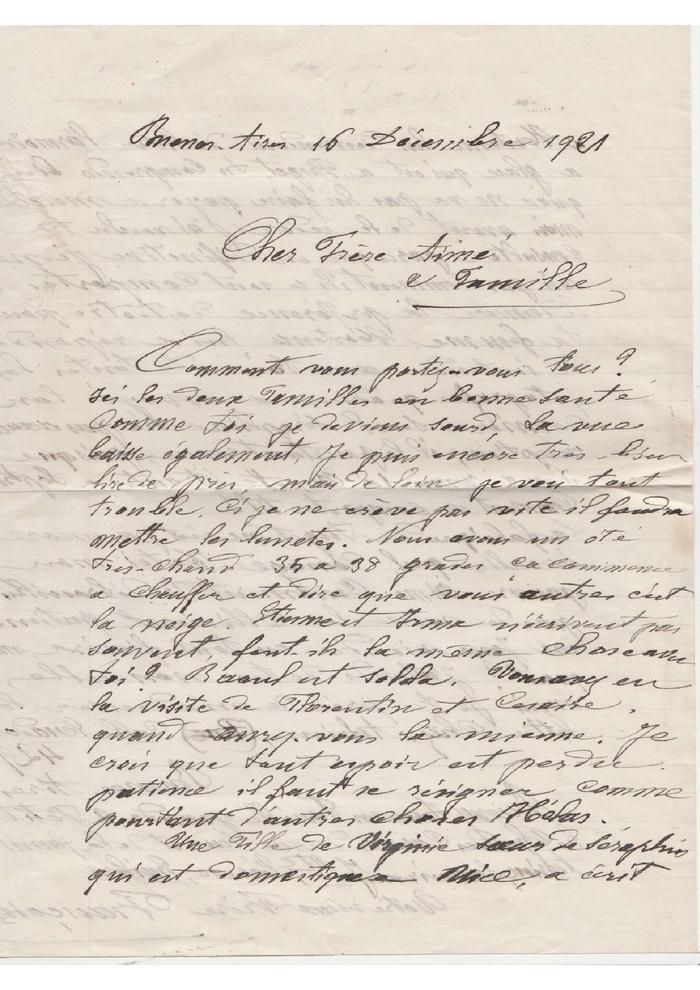 Buenos-Aires 16 Décembre 1921
Cher Frère Aimé
& Famille
Comment vous portez-vous tous?
ici les deux Familles en bonne santé
comme toi je deviens sourd, La vue
baisse également, Je puis encore très-bien
lire de pres mais de loin je vois tout
trouble. Ci je ne crève pas vite il faudra
mettre les lunetes. Nous avons un été
très-chaud 35 a 38 grades ca commence
a chauffer et dire que vous autres c'est
la neige. Etienne et Irma n'écrivent pas
souvent, font-ils la même chose avec
toi? Raoul est solda. Vous avez eu
la visite de Florentin et Cesaire,
quand aurez-vous la mienne. Je
crois que tout espoir est perdu
patience il faut se résigner comme
pourtant d'autres choses Hélas.
Une Fille de Virginie sœur de Séraphin
qui est domestique a Nice, a écrit